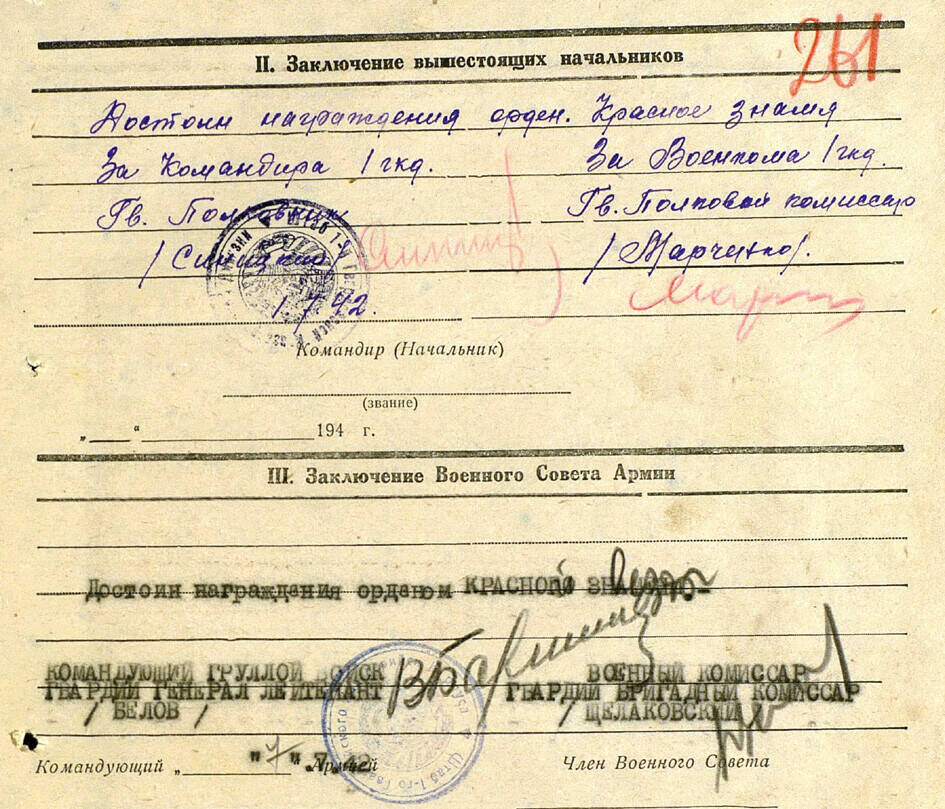 261
II. Заключение вышестоящих начальников
Достоин награждения орден. Красное Знамя
За Командира 1 гкд. За Военкома 1 гкд.
Гв. Полковник Гв. Полковой комиссар
/Синицкий/ /Марченко/.
1.7.42.
Командир (Начальник)
(звание)
„ “ 194 г.
III. Заключение Военного Совета Армии
Достоин награждения орденом КРАСНОЙ ЗНАМЯ
КОМАНДУЮЩИЙ ГРУЛЛОЙ ВОЙСК ВОЕННЫЙ КОМИССАР
ГВАРДИИ ГЕНЕРАЛ ЛЕЙТЕНАНТ ГВАРДИИ БРИГАДНЫЙ КОМИССАР
/ БЕЛОВ / / ЩЕЛАКОВСКИЙ /
"7".7.42
Командующий „ Армией Член Военного Совета